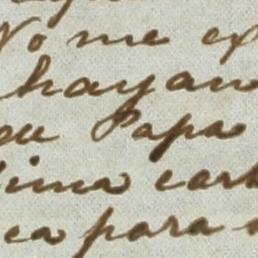 No me ex
hayan
que Papa
tima cart
ca para